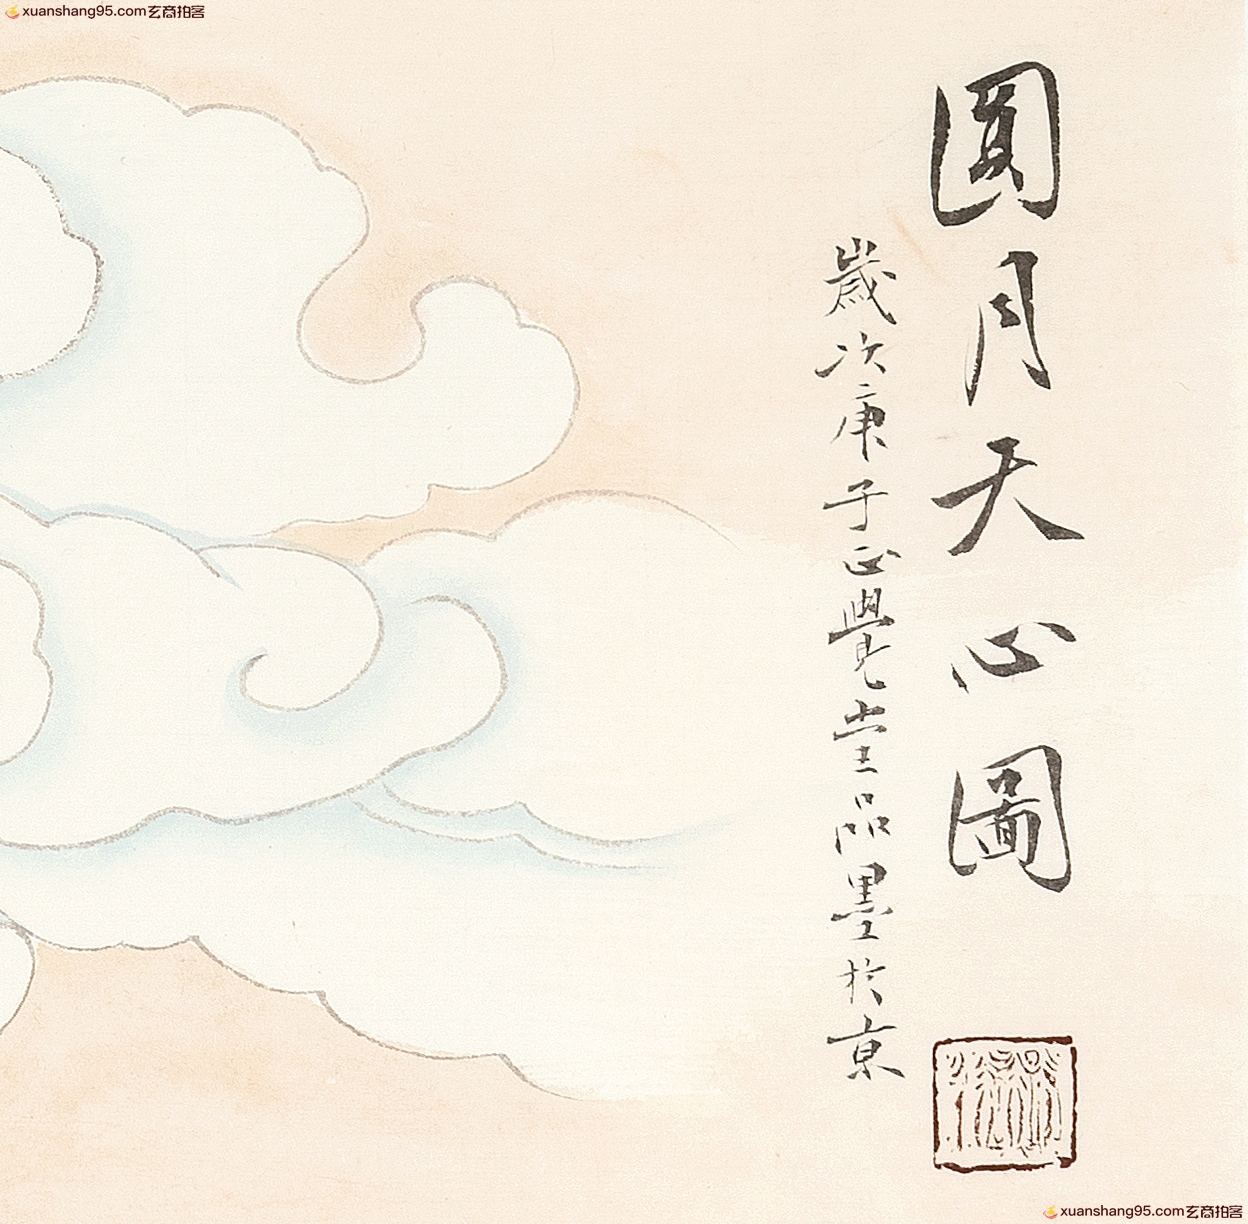 xuanshang95.com玄商拍客
圓月天心圖
歲次庚子正覺堂品墨於京
xuanshang95.com玄商拍客